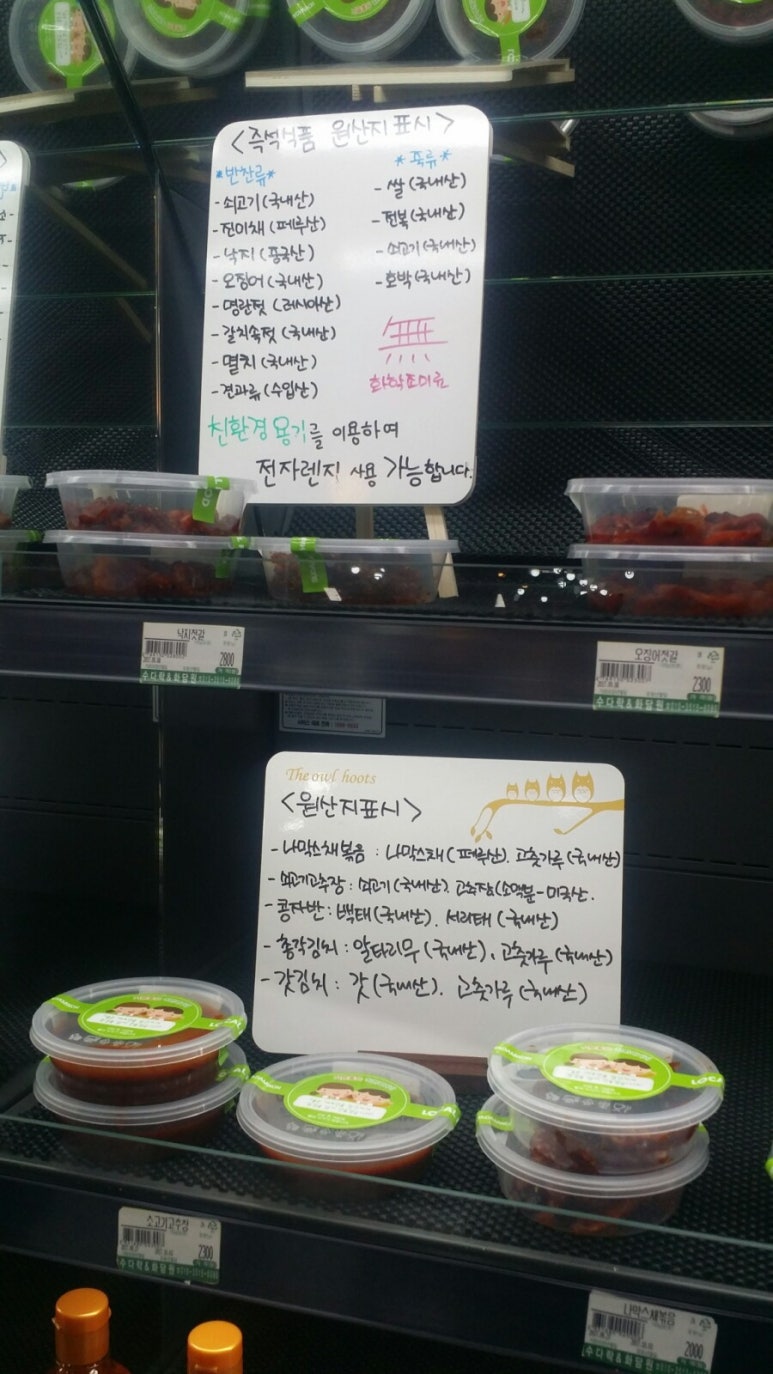 <즉석식품 원산지표시>
*반찬류*
- 쇠고기(국내산)
- 진미채(페루산)
- 낙지(중국산)
- 오징어(국내산)
- 명란젓(러시아산)
- 갈치속젓(국내산)
- 멸치(국내산)
- 견과류(수입산)
*죽류*
- 쌀(국내산)
- 전복(국내산)
- 쇠고기(국내산)
- 호박(국내산)
無
화학조미료
친환경용기를 이용하여
전자렌지 사용 가능합니다.
낙지젓갈
2800
수다락&화담원
오징어젓갈
2300
수다락&화담원
The owl hoots
<원산지표시>
- 나막스채볶음 : 나막스채(페루산). 고춧가루(국내산)
- 쇠고기고추장 : 쇠고기(국내산). 고추장(소맥분-미국산.
- 콩자반 : 백태(국내산). 서리태(국내산)
- 총각김치 : 알타리무(국내산). 고춧가루(국내산)
- 갓김치 : 갓(국내산). 고춧가루(국내산)
소고기고추장
2300
수다락&화담원
나막스채볶음
2000
수다락&화담원